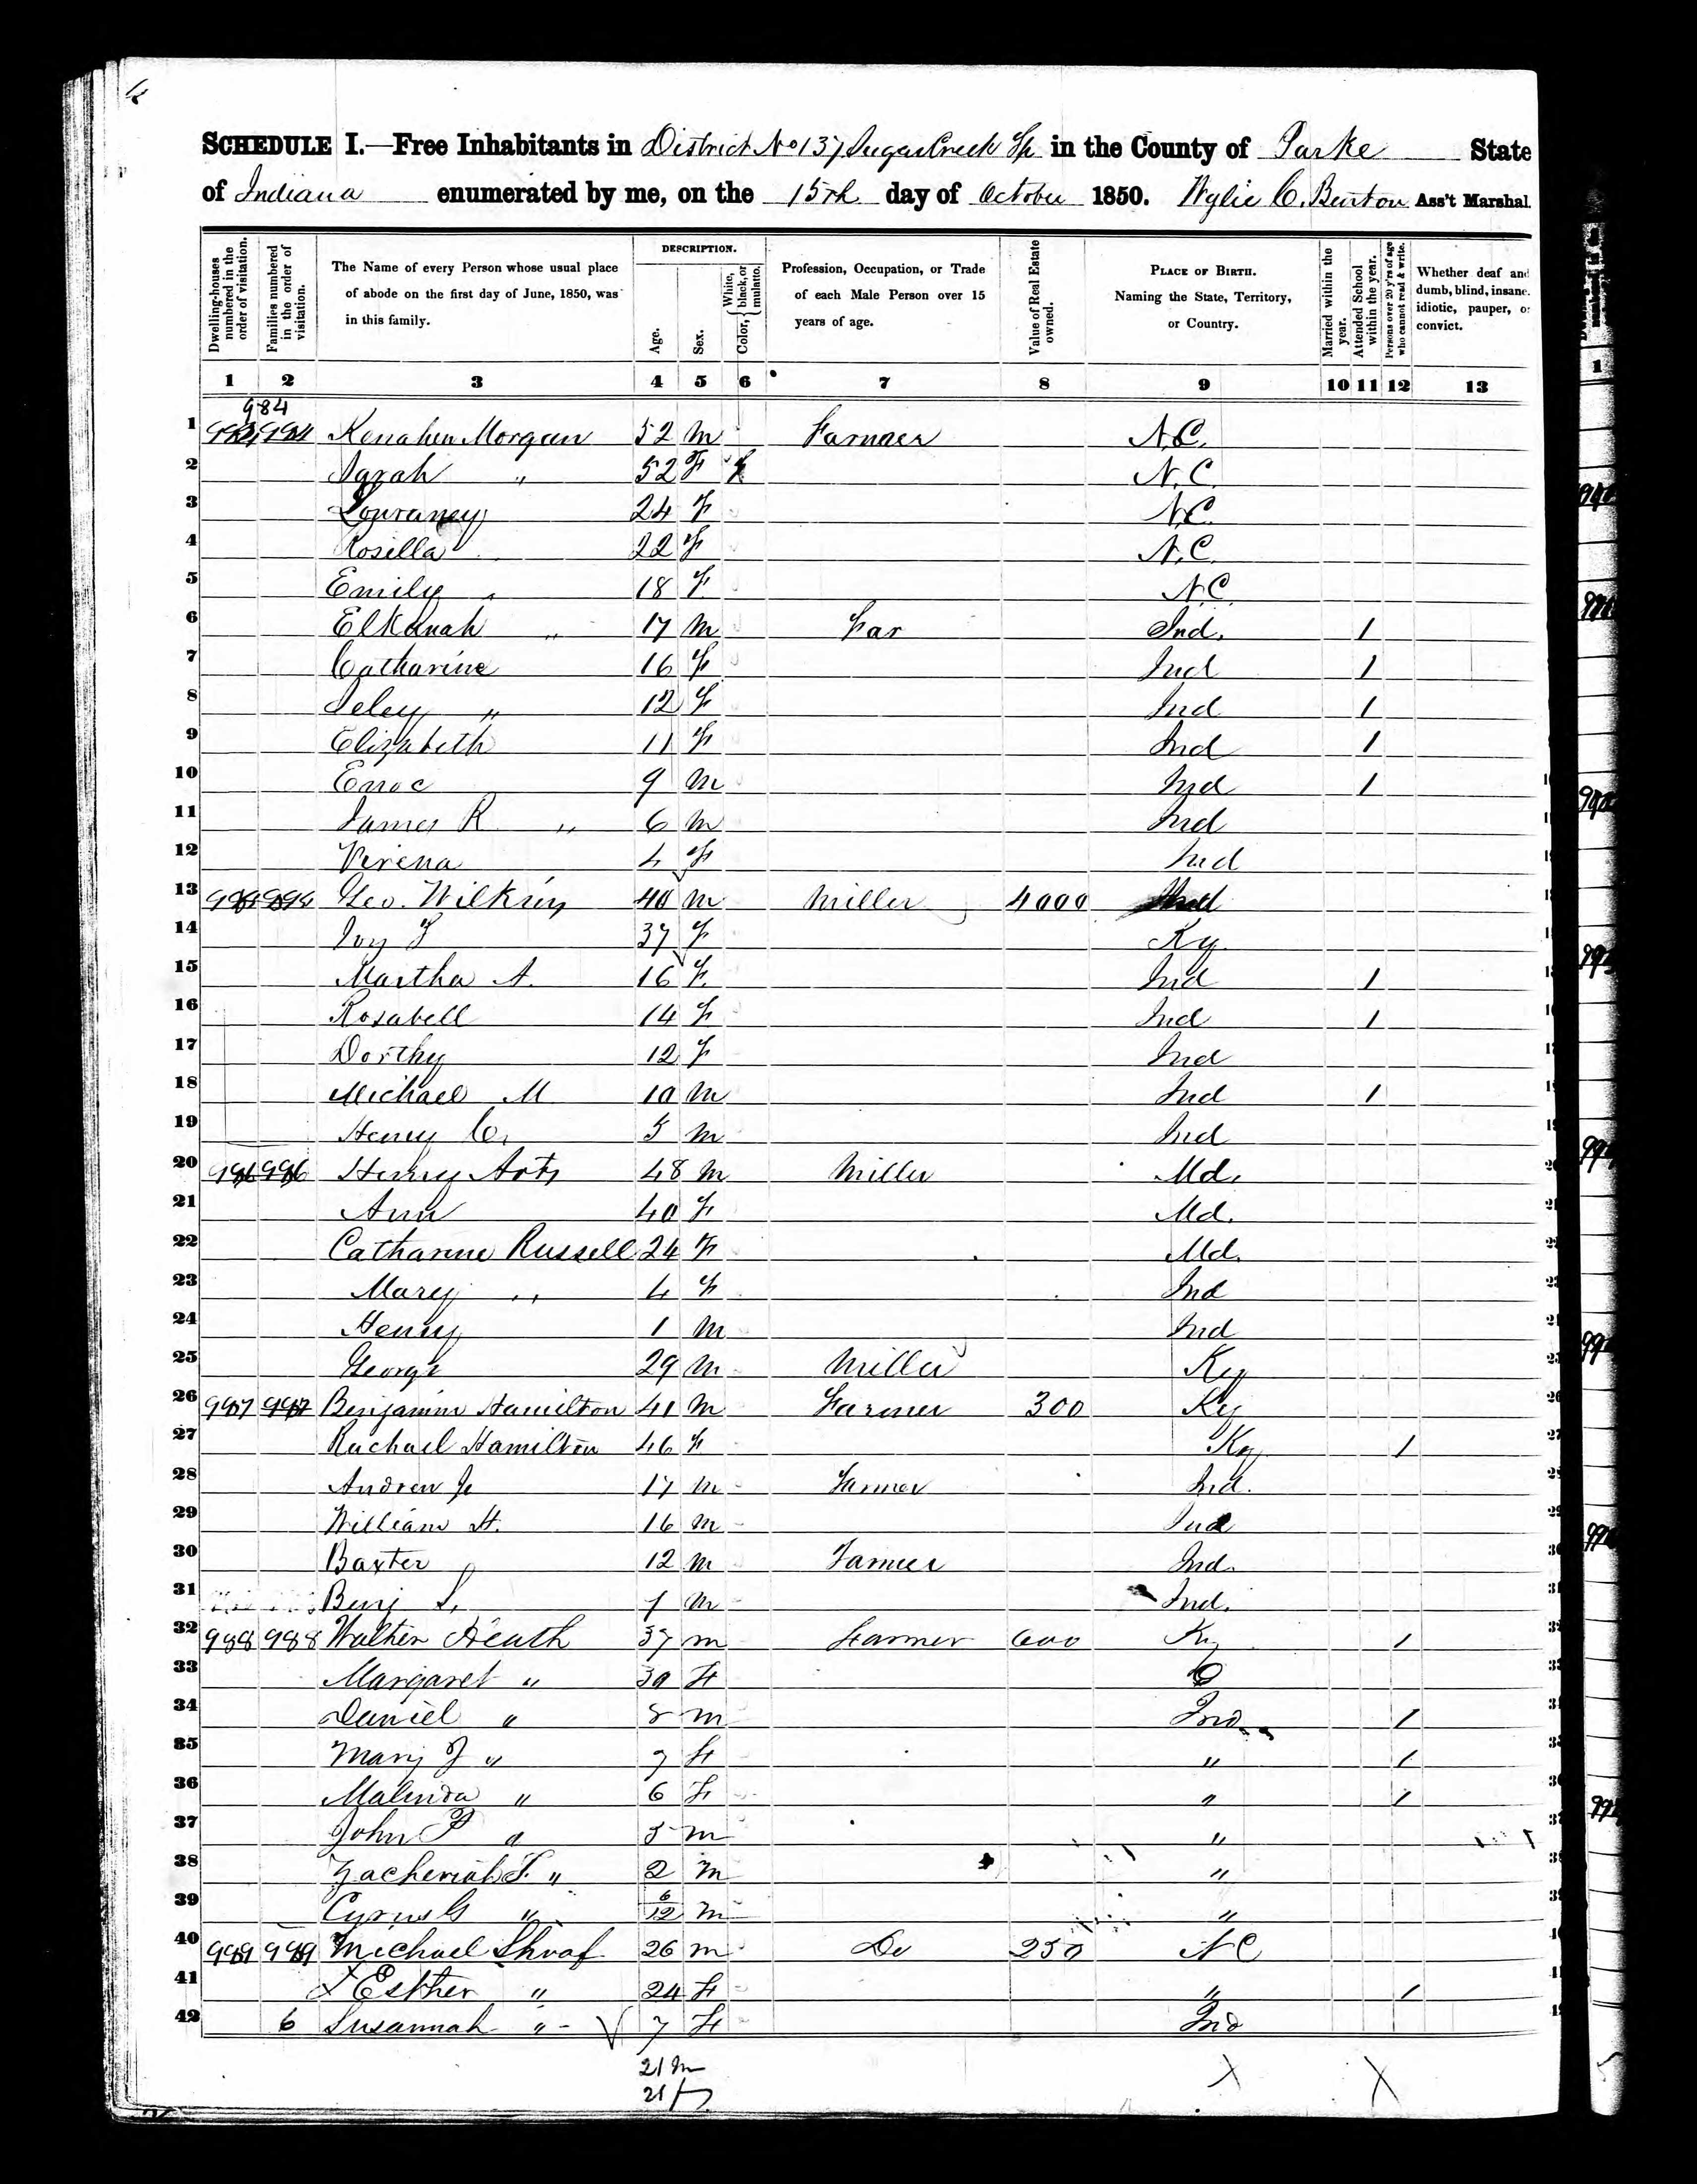 SCHEDULE I.—Free Inhabitants in District No 137 Sugar Creek Tp in the County of Parke State
of Indiana enumerated by me, on the 15th day of October 1850. Wylie C. Burton Ass't Marshal.
Dwelling-houses numbered in the order of visitation.
Families numbered in the order of visitation.
The Name of every Person whose usual place of abode on the first day of June, 1850, was in this family.
DESCRIPTION.
Age.
Sex.
Color, { White, black, or mulatto.
Profession, Occupation, or Trade of each Male Person over 15 years of age.
Value of Real Estate owned.
PLACE OF BIRTH. Naming the State, Territory, or Country.
Married within the year.
Attended School within the year.
Persons over 20 y'rs of age who cannot read & write.
Whether deaf and dumb, blind, insane, idiotic, pauper, or convict.
1 2 3 4 5 6 7 8 9 10 11 12 13
984
1 Morgan 52 m Farmer N.C.
2 Sarah " 52 F N.C.
3 Louraney 24 F N.C.
4 Rosilla 22 F N.C.
5 Emily " 18 F N.C.
6 Elkanah " 17 m Far Ind. 1
7 Catharine 16 F Ind 1
8 Seley " 12 F Ind 1
9 Elizabeth 11 F Ind 1
10 Enoc 9 m Ind 1
11 James R " 6 m Ind
12 Virena 4 F Ind
13 Geo. Wilkins 40 m Miller 4000 Ind
14 Ivy F 37 F Ky
15 Martha A. 16 F. Ind 1
16 Rosabell 14 F Ind 1
17 Dorthy 12 F Ind
18 Michael M 10 m Ind 1
19 Henry C. 5 m Ind
20 Henry 48 m Miller Md.
21 Ann 40 F Md.
22 Catharine Russell 24 F Md.
23 Mary " 4 F Ind
24 Henry 1 m Ind
25 George 29 m Miller Ky
26 987 987 Benjamin Hamilton 41 m Farmer 300 Ky
27 Rachael Hamilton 46 F Ky 1
28 Andrew J 17 m Farmer Ind.
29 William H. 16 m Ind
30 Baxter 12 m Farmer Ind.
31 Benj S. 1 m Ind.
32 988 988 Walter Heath 37 m Farmer 600 Ky 1
33 Margaret " 30 F O
34 Daniel " 8 m Ind 1
35 Mary J " 7 F " 1
36 Malinda " 6 F " 1
37 John P " 5 m "
38 Zacheriah T. " 2 m "
39 Cyrus G " 6/12 m "
40 989 989 Michael Shoaf 26 m Do 250 NC
41 X Esther " 24 F " 1
42 6 Susannah " 7 F Ind
21 m
21 f
X X